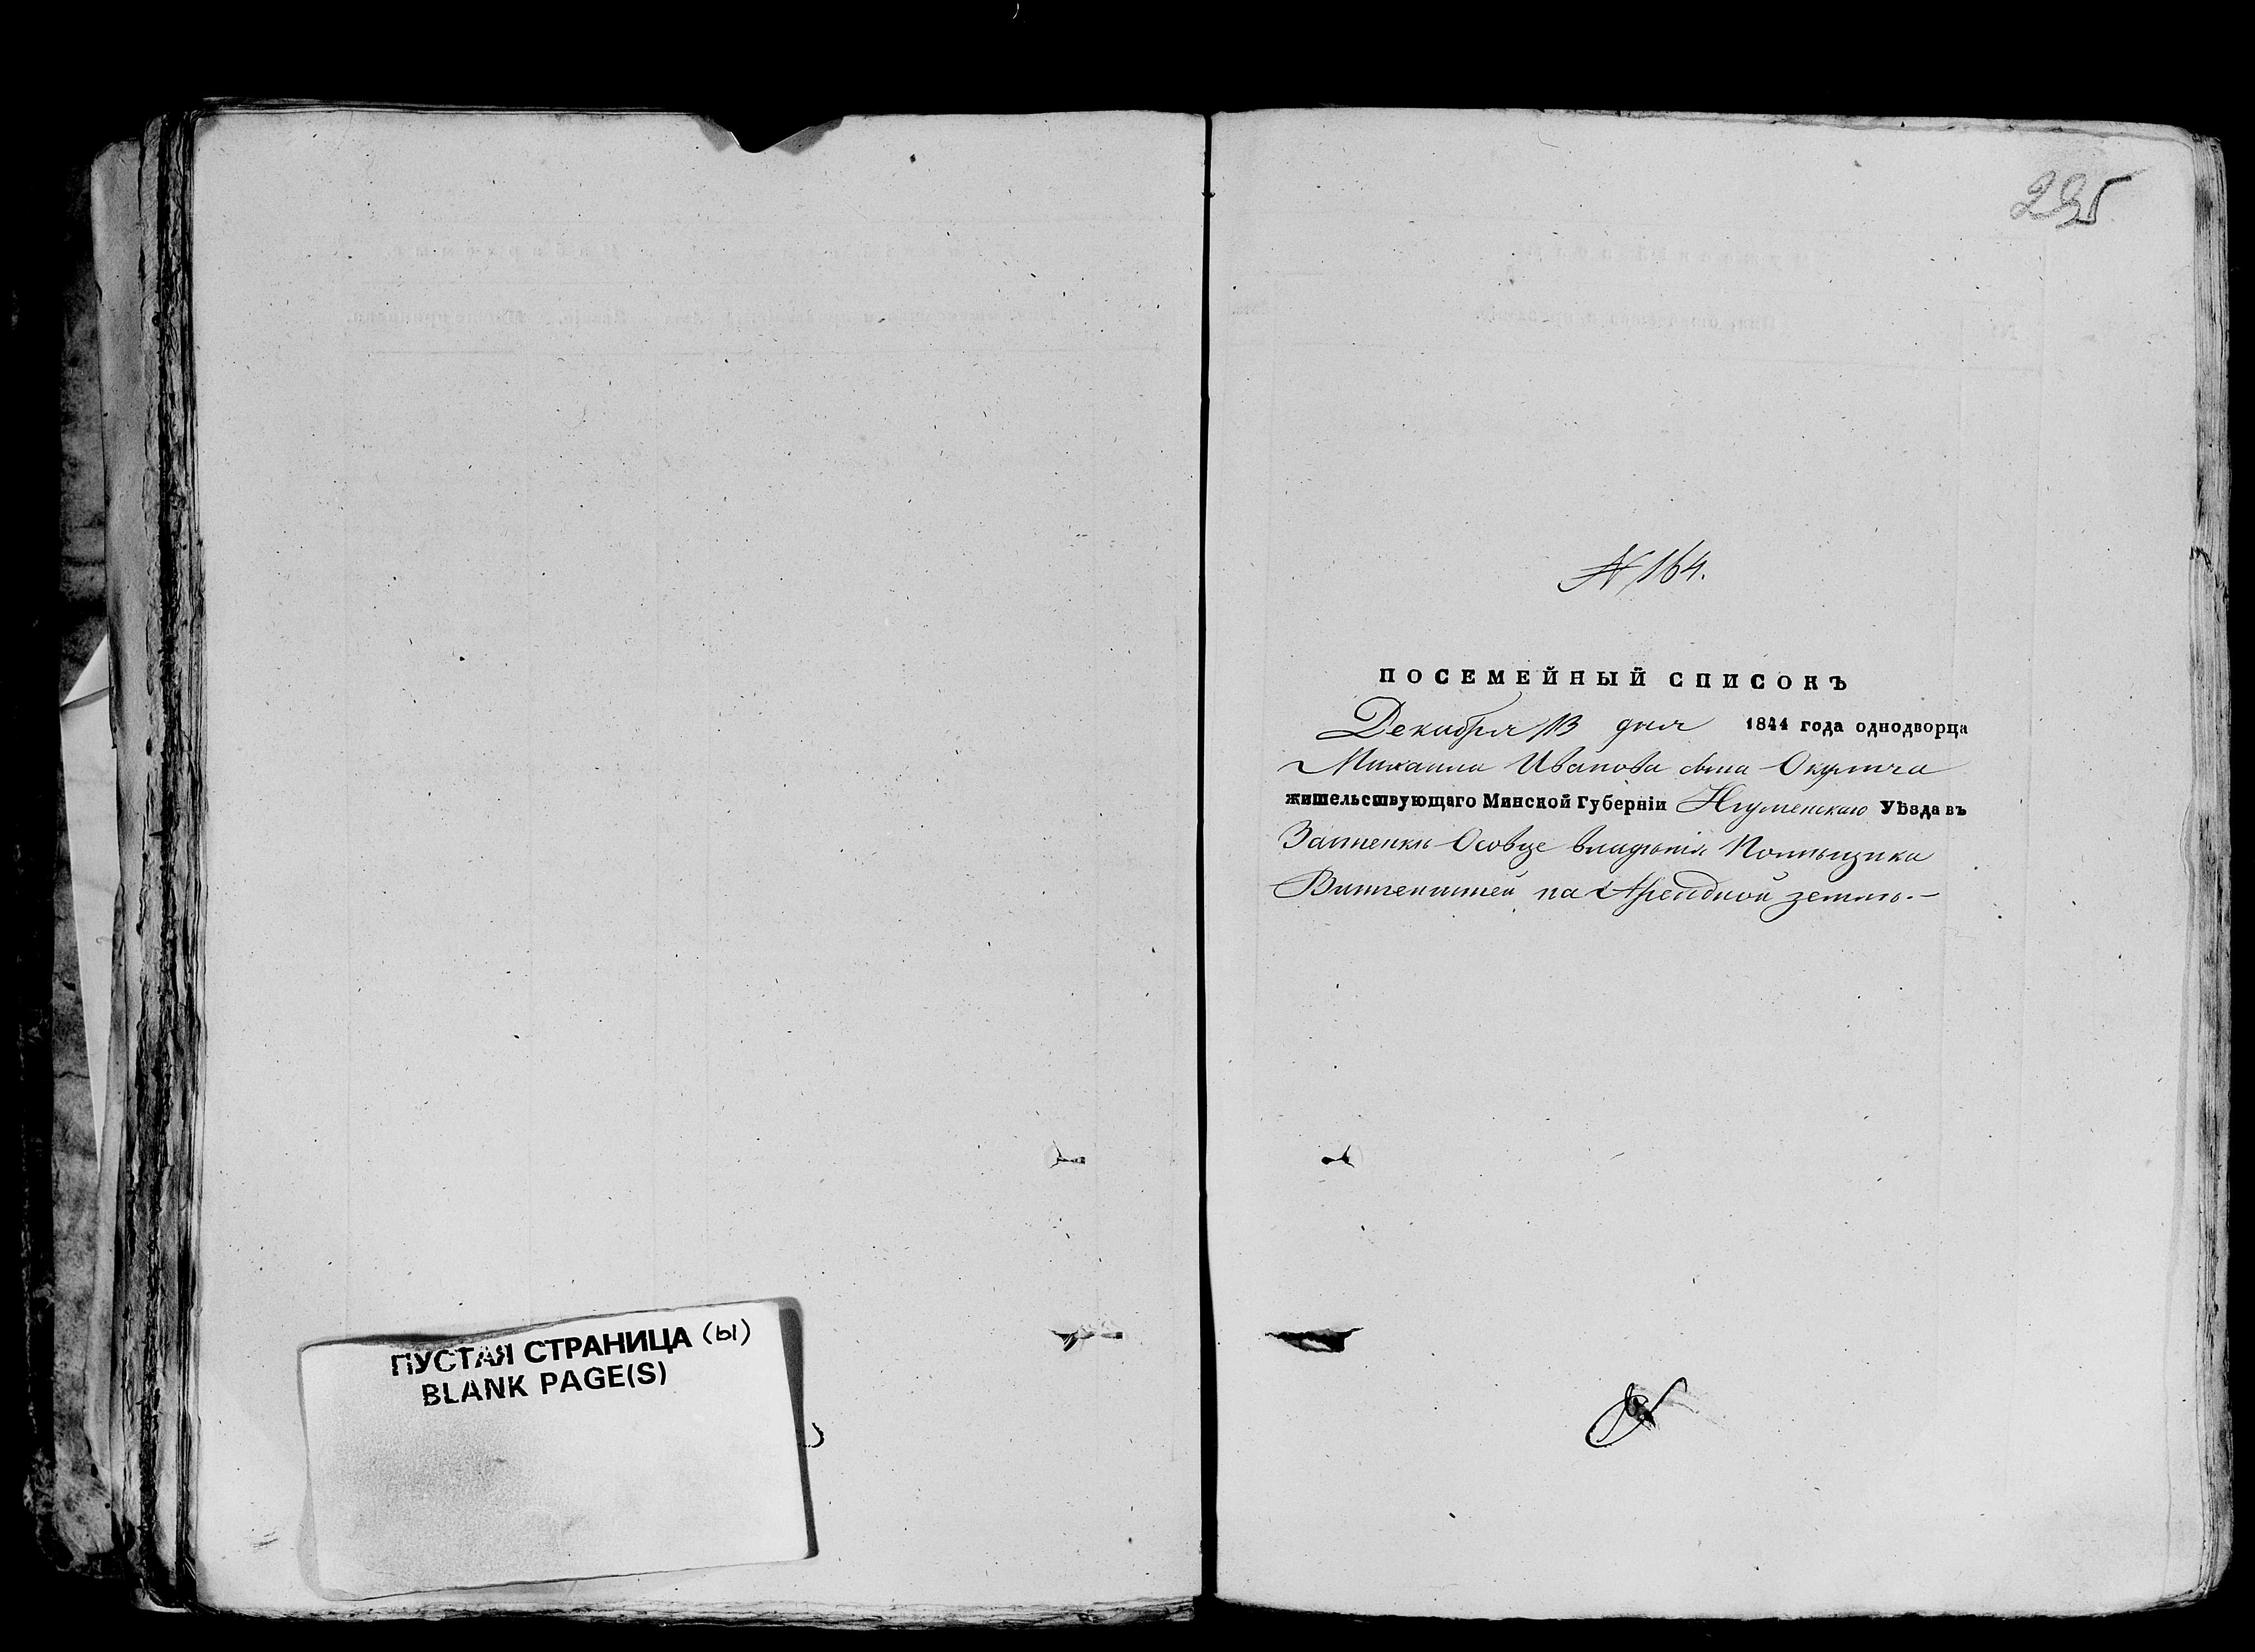 ПУСТАЯ СТРАНИЦА (ы)
BLANK PAGE(S)
295
№ 164.
ПОСЕМЕЙНЫЙ СПИСОКЪ
Декабря 13 дня 1844 года однодворца
Михаила Иванова сына Окулича
жительствующаго Минской Губерніи Игуменскаго Уѣзда въ
Застенкѣ Осовце владѣнія Помѣщика
Витгенштей на Арендной землѣ.—